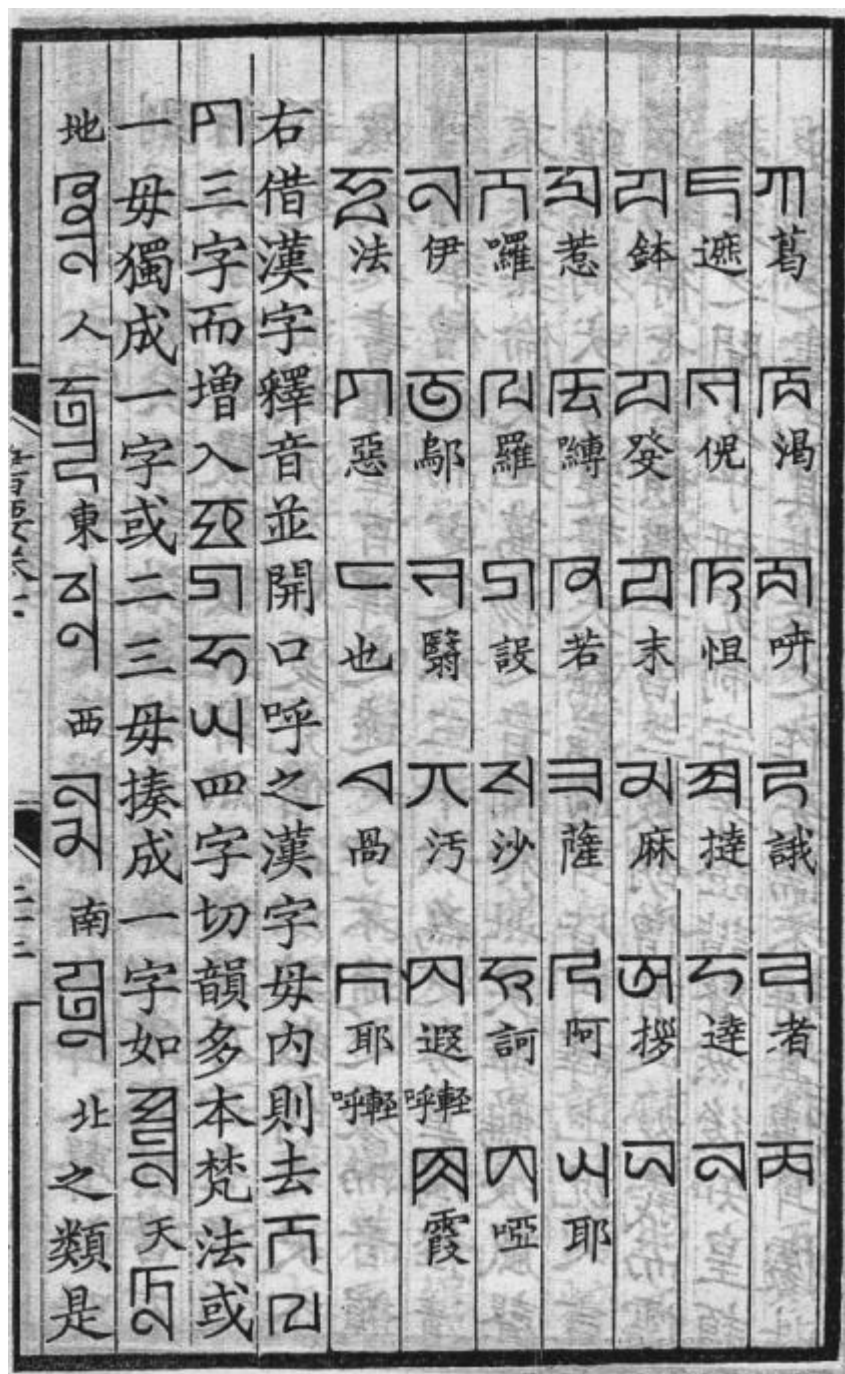 ꡀ葛 ꡁ渴 ꡂ咞 ꡃ誐 ꡄ者 ꡅ
ꡆ遮 ꡇ倪 ꡈ怛 ꡉ撻 ꡊ達 ꡋ
ꡌ鉢 ꡍ癹 ꡎ末 ꡏ麻 ꡐ拶 ꡑ
ꡒ惹 ꡓ嚩 ꡔ若 ꡕ薩 ꡖ阿 ꡗ耶
ꡘ囉 ꡙ羅 ꡚ設 ꡛ沙 ꡜ訶 ꡝ啞
ꡞ伊 ꡟ鄔 ꡠ翳 ꡡ汚 ꡢ遐輕呼 ꡣ霞
ꡤ法 ꡥ惡 ꡦ也 ꡧ喎 ꡨ耶輕呼
右借漢字釋音並開口呼之漢字母内則去ꡘ
ꡥ三字而增入ꡤꡚꡜꡗ四字切韻多本梵法或
一母獨成一字或二三母揍成一字如ꡉꡞꡋ天ꡊꡞ
地ꡔꡞꡋ人ꡈꡟꡃ東ꡛꡞ西ꡋꡏ南ꡎꡟꡞ北之類是